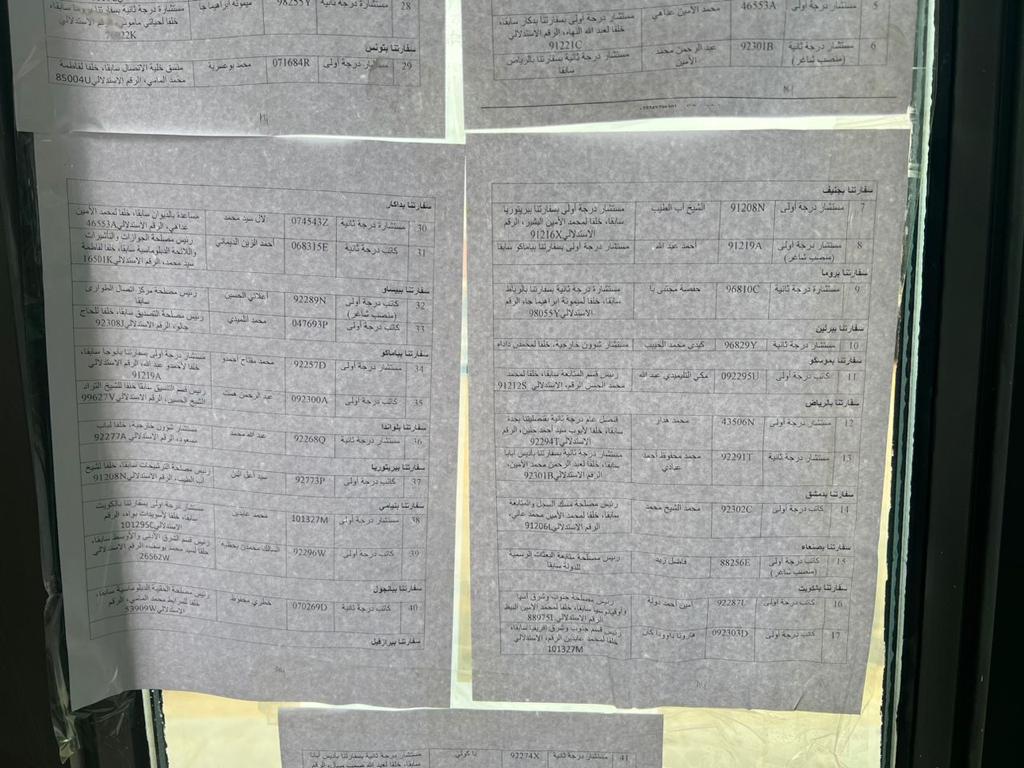 5 مستشار درجة أولى 46553A محمد الأمين عداهي مستشار درجة أولى بسفارتنا بدكار سابقا،
خلفا لعبد الله النهاه، الرقم الاستدلالي
91221C
6 مستشار درجة ثانية 92301B عبد الرحمن محمد مستشار درجة ثانية بسفارتنا بالرياض
(منصب شاغر) الأمين سابقا
سفارتنا بجنيف
7 مستشار درجة أولى 91208N الشيخ أب الطيب مستشار درجة أولى بسفارتنا ببريتوريا
سابقا، خلفا لمحمد الأمين البشير، الرقم
الاستدلالي91216X
8 مستشار درجة أولى 91219A أحمد عبد الله مستشار درجة أولى بسفارتنا بباماكو سابقا
(منصب شاغر)
سفارتنا بروما
9 مستشارة درجة ثانية 96810C حفصة مجتبى با مستشارة درجة ثانية بسفارتنا بالرباط
سابقا، خلفا لميمونة ابراهيما جاه، الرقم
الاستدلالي98055Y
سفارتنا ببرلين
10 مستشار درجة ثانية 96829Y كبدي محمد الحبيب مستشار شؤون خارجية، خلفا لمحمدن داداه
سفارتنا بموسكو
11 كاتب درجة أولى 092295U مكي التلميدي عبد الله رئيس قسم المتابعة سابقا، خلفا لمحمد
محمد الحسن الرقم، الاستدلالي91212S
سفارتنا بالرياض
12 مستشار درجة أولى 43506N محمد هدار قنصل عام درجة ثانية بقنصليتنا بجدة
سابقا، خلفا لأيوب سيد أحمد حنين، الرقم
الاستدلالي92294T
13 مستشار درجة ثانية 92291T محمد محفوظ أحمد مستشار درجة ثانية بسفارتنا بأديس أبابا
عبادي سابقا، خلفا لعبد الرحمن محمد الأمين،
الرقم الاستدلالي92301B
سفارتنا بدمشق
14 كاتب درجة أولى 92302C محمد الشيخ محمد رئيس مصلحة مسك السجل والمتابعة
سابقا، خلفا لمحمد الأمين محمد عالي،
الرقم الاستدلالي91206L
سفارتنا بصنعاء
15 كاتب درجة أولى 88256E فاضل زيد رئيس مصلحة متابعة البعثات الرسمية
(منصب شاغر) للدولة سابقا
سفارتنا بالكويت
16 كاتب درجة أولى 92287L أمين أحمد دولة رئيس مصلحة جنوب وشرق آسيا
سابقا، خلفا لمحمد الأمين
الاستدلالي88975J
17 كاتب درجة أولى 092303D باوودا كان رئيس قسم جنوب وشرق إفريقيا سابقا،
خلفا لمحمد عابدين الرقم، الاستدلالي
101327M
28 مستشارة درجة ثانية 98255Y ميمونة ابراهيما جا مستشارة درجة ثانية بسفارتنا بروما سابقا،
سفارتنا بتونس
29 مستشار درجة أولى 071684R محمد بوعسرية منسق خلية الاتصال سابقا، خلفا لفاطمة
محمد المامي، الرقم الاستدلالي85004U
سفارتنا بداكار
30 مستشارة درجة ثانية 074543Z لال سيد محمد مساعدة بالديوان سابقا، خلفا لمحمد الأمين
عداهي، الرقم الاستدلالي46553A
31 كاتب درجة ثانية 068315E أحمد الزين الديماني رئيس مصلحة الجوازات والتأشيرات
سابقا، خلفا لفاطمة
سيد محمد، الرقم الاستدلالي16501K
سفارتنا ببيساو
32 كاتب درجة أولى 92289N أعلاتي الحسين رئيس مصلحة مركز اتصال الطوارئ
(منصب شاغر) سابقا
33 كاتب درجة أولى 047693P محمد اللميدي رئيس مصلحة التصديق سابقا، خلفا للحاج
جالو، الرقم الاستدلالي92308J
سفارتنا بباماكو
34 مستشار درجة أولى 92257D محمد مفتاح أحمدو مستشار درجة أولى بسفارتنا بأبوجا سابقا،
خلفا لأحمدو عبد الله، الرقم الاستدلالي
91219A
35 كاتب درجة أولى 092300A عبد الرحمن همت رئيس قسم التنسيق سابقا خلفا للشيخ التراد
الشيخ الحسين، الرقم الاستدلالي99627V
سفارتنا بلواندا
36 مستشار درجة ثانية 92268Q عبد الله محمد مستشار شؤون خارجية، خلفا لباب
مسعود، الرقم الاستدلالي92277A
سفارتنا ببريتوريا
37 كاتب درجة أولى 92773P سيد أعل أنن رئيس مصلحة الترشيحات سابقا، خلفا لشيخ
أب الطيب، الرقم الاستدلالي91208N
سفارتنا بنيامي
38 مستشار درجة أولى 101327M محمد عابدين مستشار درجة أولى بسفارتنا بالكويت
سابقا، خلفا لأسويدات بواه، الرقم
الاستدلالي101295C
39 كاتب درجة أولى 92296W السالك محمدن بحظيه رئيس قسم الشرق الأدنى والأوسط سابقا،
خلفا لسيد محمد بوسف، الرقم الاستدلالي
26562W
سفارتنا ببانجول
40 كاتب درجة ثانية 070269D خطري محفوظ رئيس مصلحة الحقيبة الدبلوماسية سابقا،
خلفا للمرابط محمد المامي، الرقم
الاستدلالي53909W
سفارتنا ببرازفيل
41 مستشار درجة ثانية 92274X با كولي مستشار درجة ثانية بسفارتنا بأديس أبابا